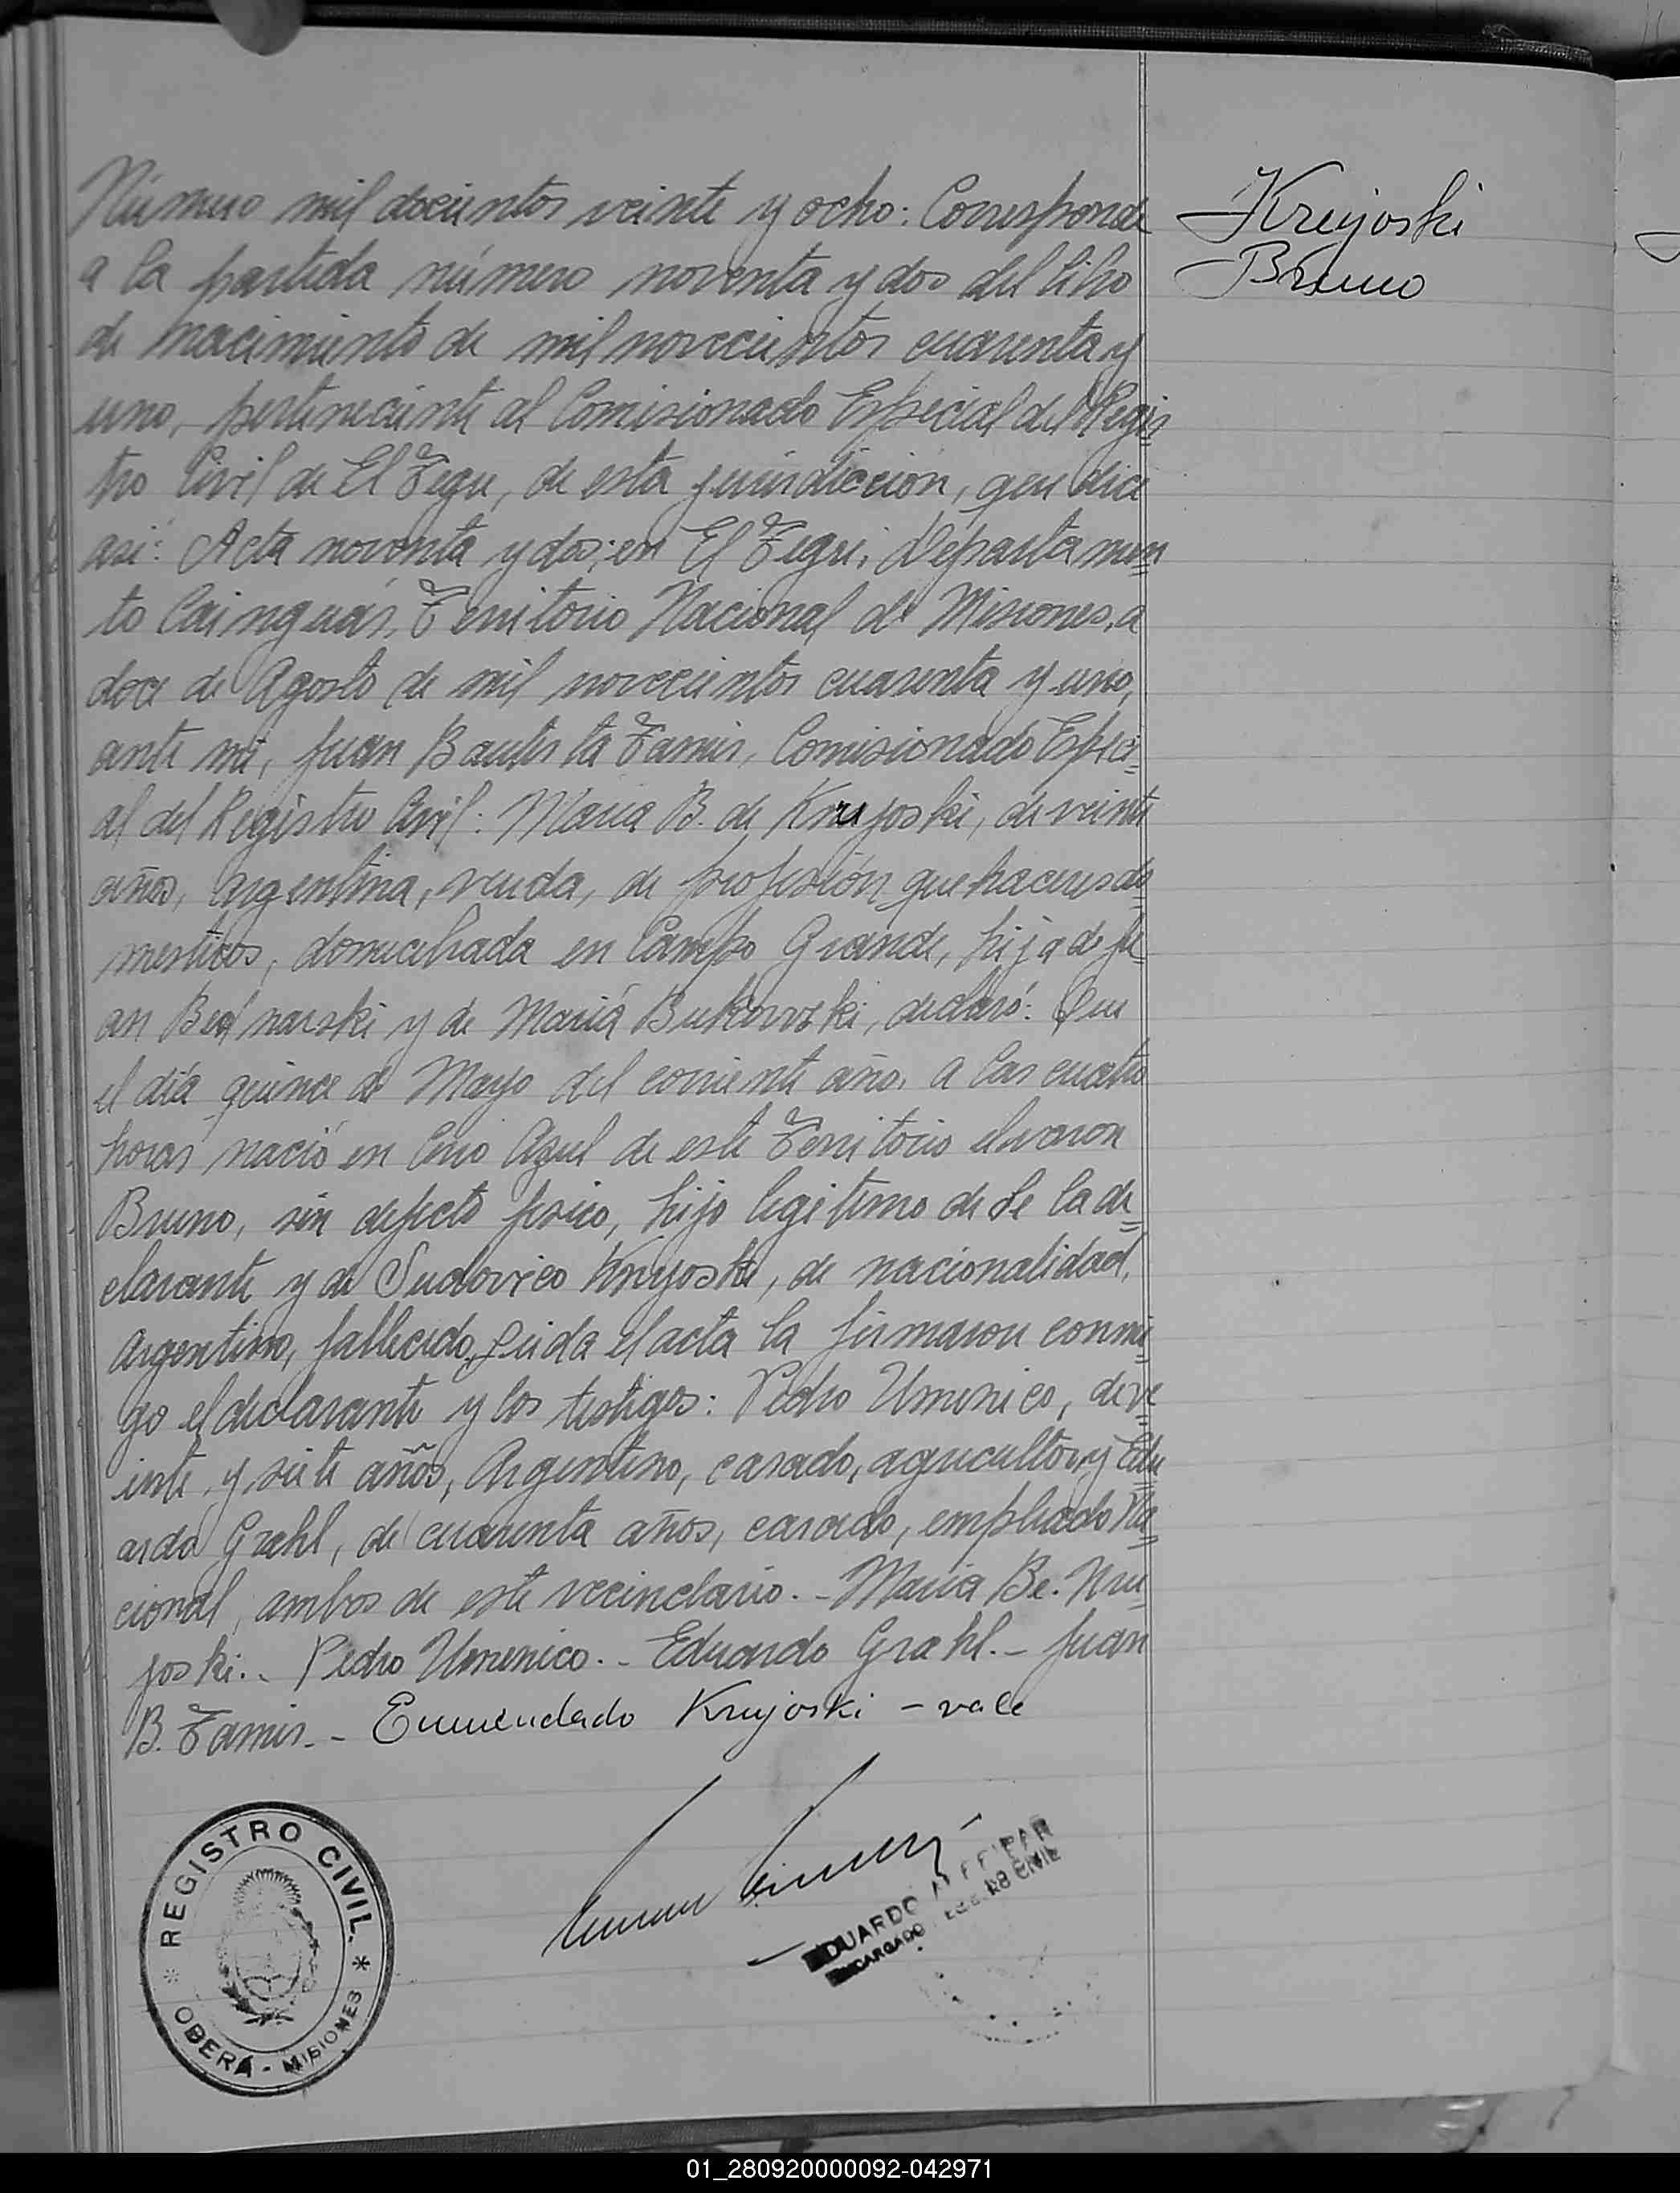 Número mil docientos veinte y ocho: Corresponde
a la partida número noventa y dos del libro
de nacimiento de mil novecientos cuarenta y
uno, perteneciente al Comisionado Especial del Regis
tro Civil de El Tigre, de esta jurisdiccion, que dice
asi: Acta noventa y dos: en El Tigre, Departamen
to Cainguás, Territorio Nacional de Misiones, a
doce de Agosto de mil novecientos cuarenta y uno,
ante mi, Juan Bautista Tamis, Comisionado Especi
al del Registro Civil: María B. de Krujoski, de veinte
años, argentina, viuda, de profesión quehaceres do
mesticos, domiciliada en Campo Grande, hija de Ju
an Bednarski y de María Bukowski, declaró: Que
el día quince de Mayo del corriente año, a las cuatro
horas nació en Cerro Azul de este Territorio el varon
Bruno, sin defecto fisico, hijo legitimo de de la de
clarante y de Ludovico Krujoski, de nacionalidad
Argentino, fallecido, Leida el acta la firmaron conmi
go el declarante y los testigos: Pedro Umenico, de ve
inte y siete años, Argentino, casado, agricultor y Edu
ardo Grahl, de cuarenta años, casado, empleado Na
cional, ambos de este vecindario.- María Be. Kru
joski.- Pedro Umenico.- Eduardo Grahl.- Juan
B. Tamis.- Enmendado Krujoski - vale
Krujoski
Bruno
REGISTRO CIVIL
OBERÁ - MISIONES
EDUARDO
01_280920000092-042971